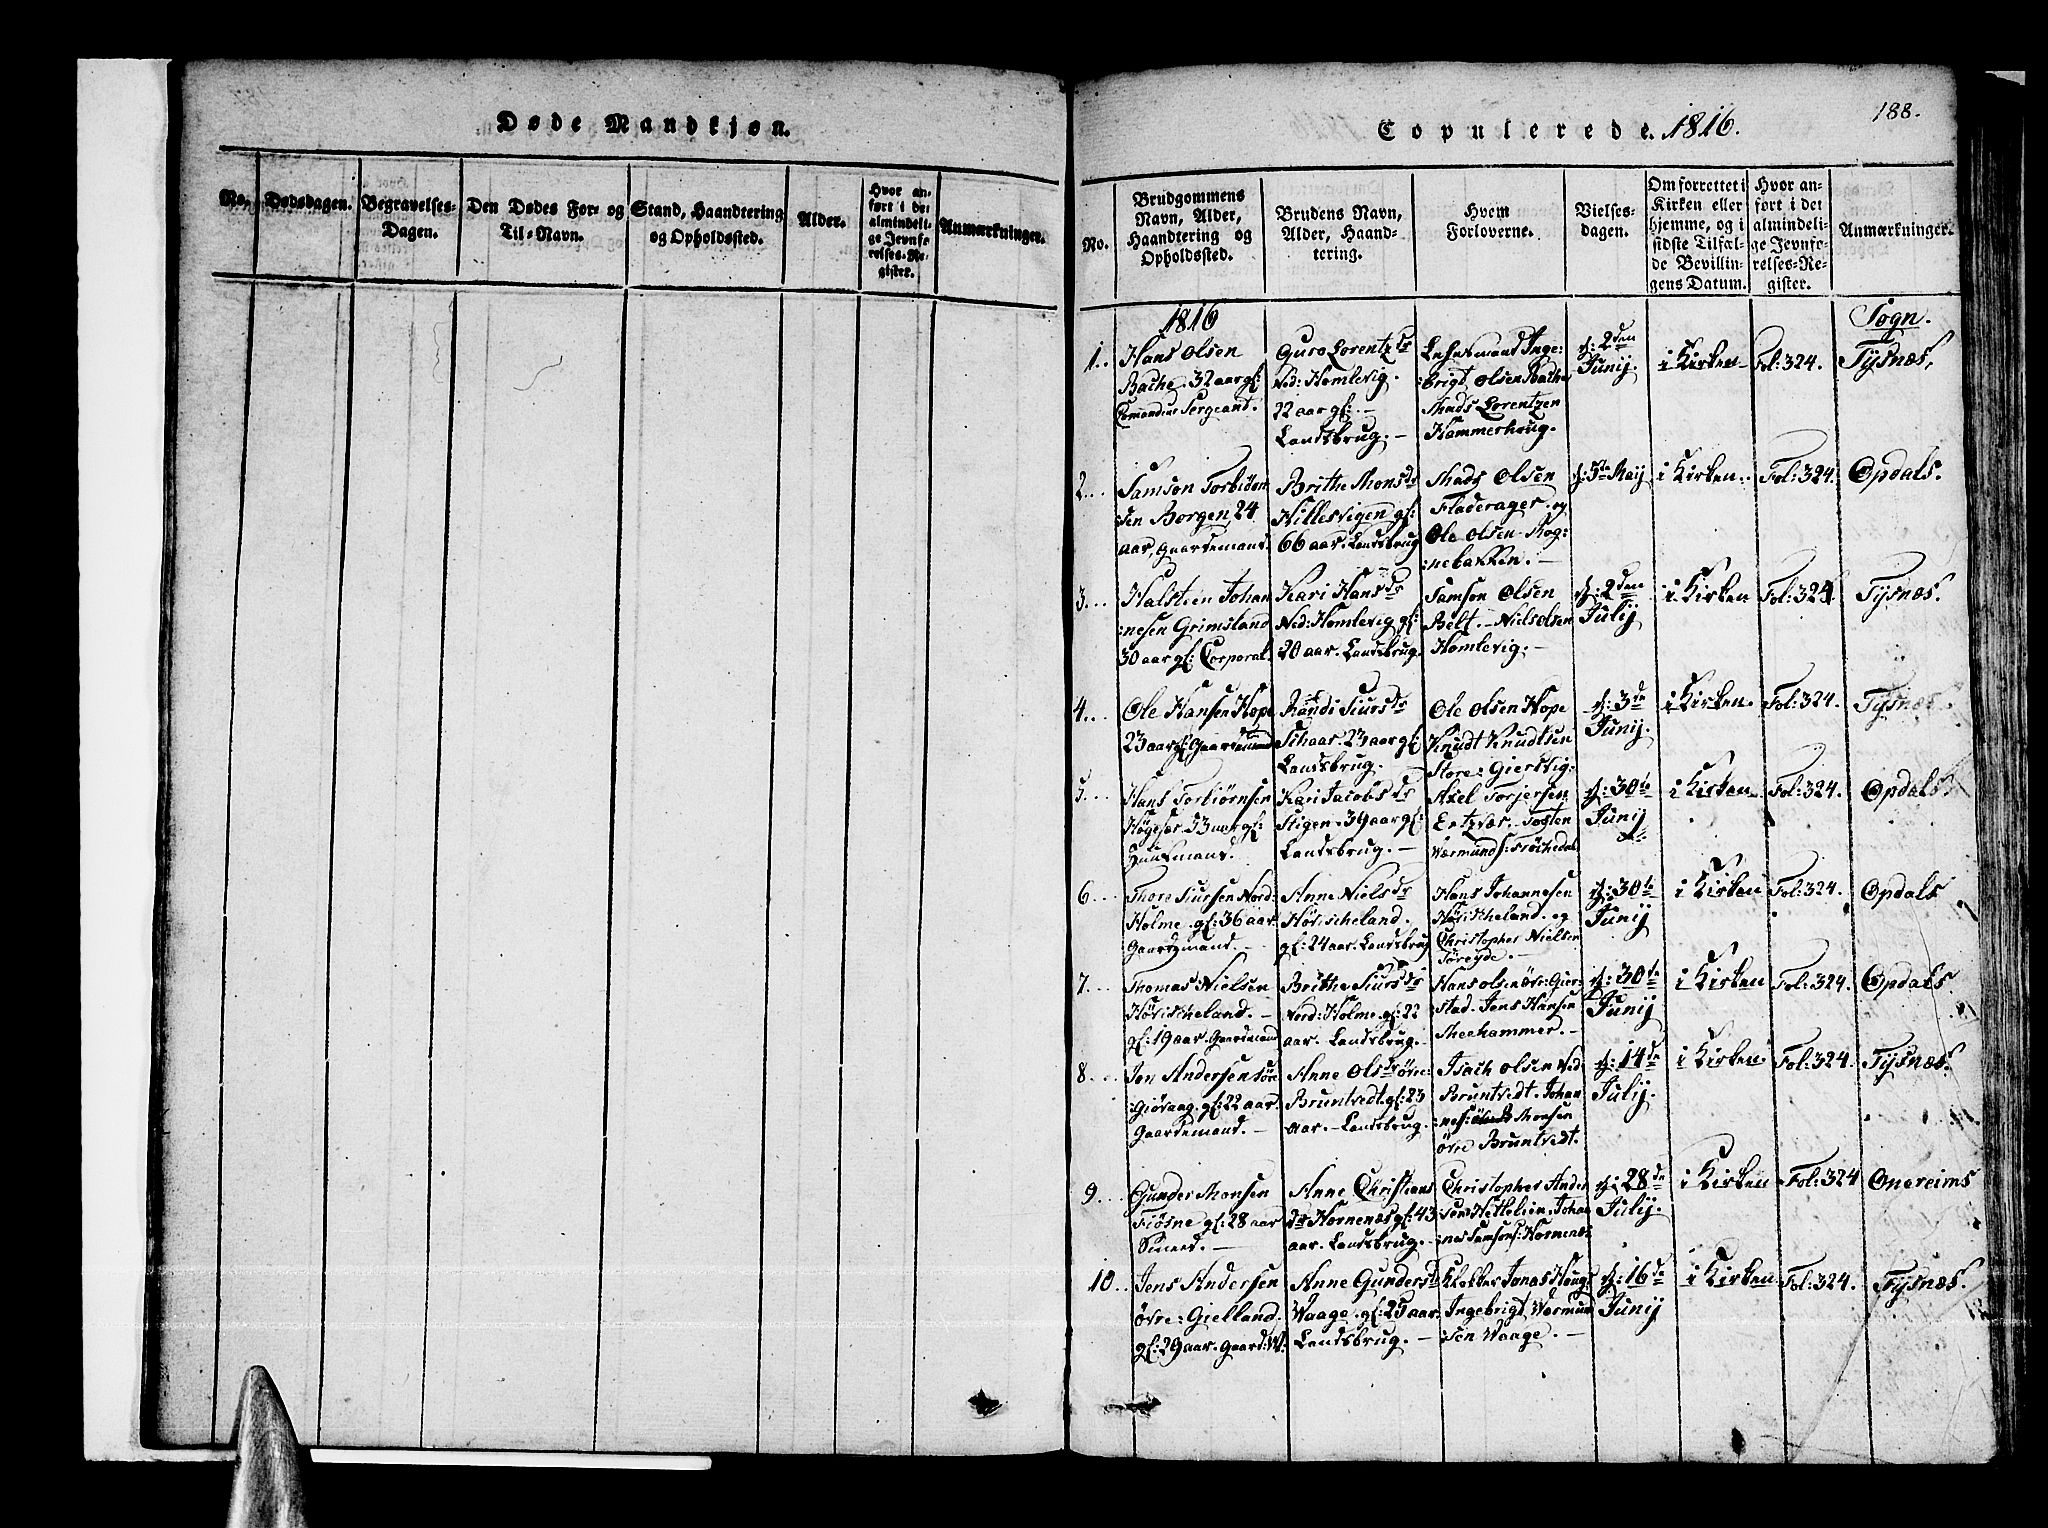 Døde Mandkjøn.
No.
Dødsdagen.
Begravelses-
Dagen.
Den Dødes For- og
Til-Navn.
Stand, Haandtering
og Opholdssted.
Alder.
Hvor an-
ført i det
almindeli-
ge Jevnfø-
relses-Re-
gister.
Anmærkninger.
188.
Copulerede. 1816.
No.
Brudgommens
Navn, Alder,
Haandtering og
Opholdssted.
Brudens Navn,
Alder, Haand-
tering.
Hvem
Forloverne.
Vielses-
dagen.
Om forrettet i
Kirken eller
hjemme, og i
sidste Tilfæl-
de Bevillin-
gens Datum.
Hvor an-
ført i det
almindeli-
ge Jevnfø-
relses-Re-
gister.
Anmærkninger.
1816
Sogn.
1..
Hans Olsen
Bache. 32 aar gl:
Comandeur Sergeand.
Guro Lorentz dr
Ned: Homlevig.
22 aar gl: -
Landsbrug. -
Lehnsmand Inge:
:brigt Olsen Bache
Mads Lorentzen
Hammerhoug.
d: 2den
Junij.
i Kirken
Fol: 324.
Tysnæs.
2...
Samson Torbiørn
sen Borgen, 24
aar, Gaardemand.
Brithe Mons dr
Hillesvigen gl:
66 aar. Landsbrug
Mads Olsen
Fladerager. og
Ole Olsen Rog:
:nebakken. -
d: 5te May
i Kirken.
Fol: 324.
Opdals.
3...
Halsteen Johan
:nesen Grimsland
30 aar gl: Corporal.
Kari Hans dr
Ned: Homlevig gl:
20 aar. Landsbrug.
Samson Olsen
Belt. - Niels Olsen
Homlevig. -
d: 2den
Julij
i Kirken
Fol: 324.
Tysnæs.
4...
Ole Hansen Hope
23 aar gl: Gaardemand
Randi Siurs dr
Schaar. 23 aar gl:
Landsbrug. -
Ole Olsen Hope
Knudt Knudtsen
Store: Giersvig:
d: 3de
Junij.
i Kirken.
Fol: 324.
Tysnæs.
5...
Hans Torbiørnsen
Høgesær. 53 aar gl:
Huusmand.
Kari Jacobs dr
Stigen. 39 aar gl:
Landsbrug. -
Axel Torjersen
Ertzvær. - Tosten
Værmunds: Frøchedal
d: 30te
Junij
i Kirken
Fol: 324.
Opdals
6...
Thore Siursen Nord:
Holme. gl: 36 aar
Gaardemand. -
Anne Niels dr
Høvischeland.
gl: 24 aar. Landsbrug
Hans Johannesen
Høvischeland. og
Christopher Nielsen
Søreyde. -
d: 30te
Junij
i Kirken
Fol: 324.
Opdals
7...
Thomas Nielsen
Høvischeland. -
gl: 19 aar. Gaardemand
Brithe Siurs dr
Nord: Holme. gl: 22
aar. Landsbrug.
Hans Olsen Øvre: Gier:
stad. Jens Hansen
Meehammer. -
d: 30te
Junij
i Kirken
Fol: 324.
Opdals
8...
Jon Andersen Søre
:Giøvaag. gl: 22 aar.
Gaardemand. -
Anne Ols dr Øvre:
Bruntvedt. gl: 23
aar. - Landsbrug.
Isach Olsen Ned
Bruntvedt. Johan
:nes: Monsen
Øvre Bruntvedt.
d: 14de
Julij.
i Kirken
Fol: 324.
Tysnæs.
9...
Gunder Monsen
Fiøsne gl: 28 aar
Smeed. -
Anne Christians
dr Hornenæs gl: 43
aar. Landsbrug. -
Christopher Ander
sen Hetlelien. Johan
:nes Samsons: Hornenæs
d: 28de
Julij.
i Kirken
Fol: 324
Onereims
10..
Jens Andersen
Øvre: Gielland.
gl: 29 aar. Gaard: M:
Anne Gunders dr
Waage. gl: 25 aar.
Landsbrug. -
Klokker Jonas Houg:
Ingebrigt Wærmund
:sen Waage. -
d: 16de
Junij
i Kirken
Fol: 324.
Tysnæs.